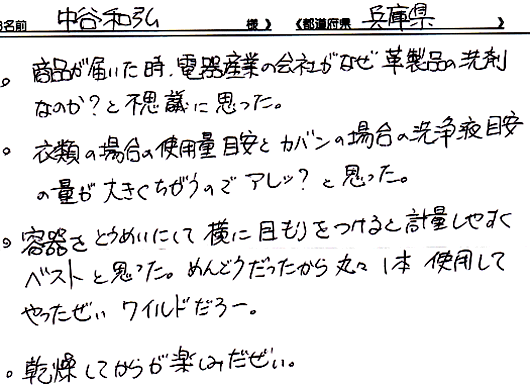 お名前 中谷和弘 様 》 《都道府県 兵庫県 》
。商品が届いた時、電器産業の会社がなぜ革製品の洗剤
なのか？と不思議に思った。
。衣類の場合の使用量目安とカバンの場合の洗浄液目安
の量が大きくちがうのでアレッ？と思った。
。容器をとうめいにして横に目もりをつけると計量しやすく
ベストと思った。めんどうだったから丸々1本使用して
やったぜぃ ワイルドだろー。
。乾燥してからが楽しみだぜぃ。